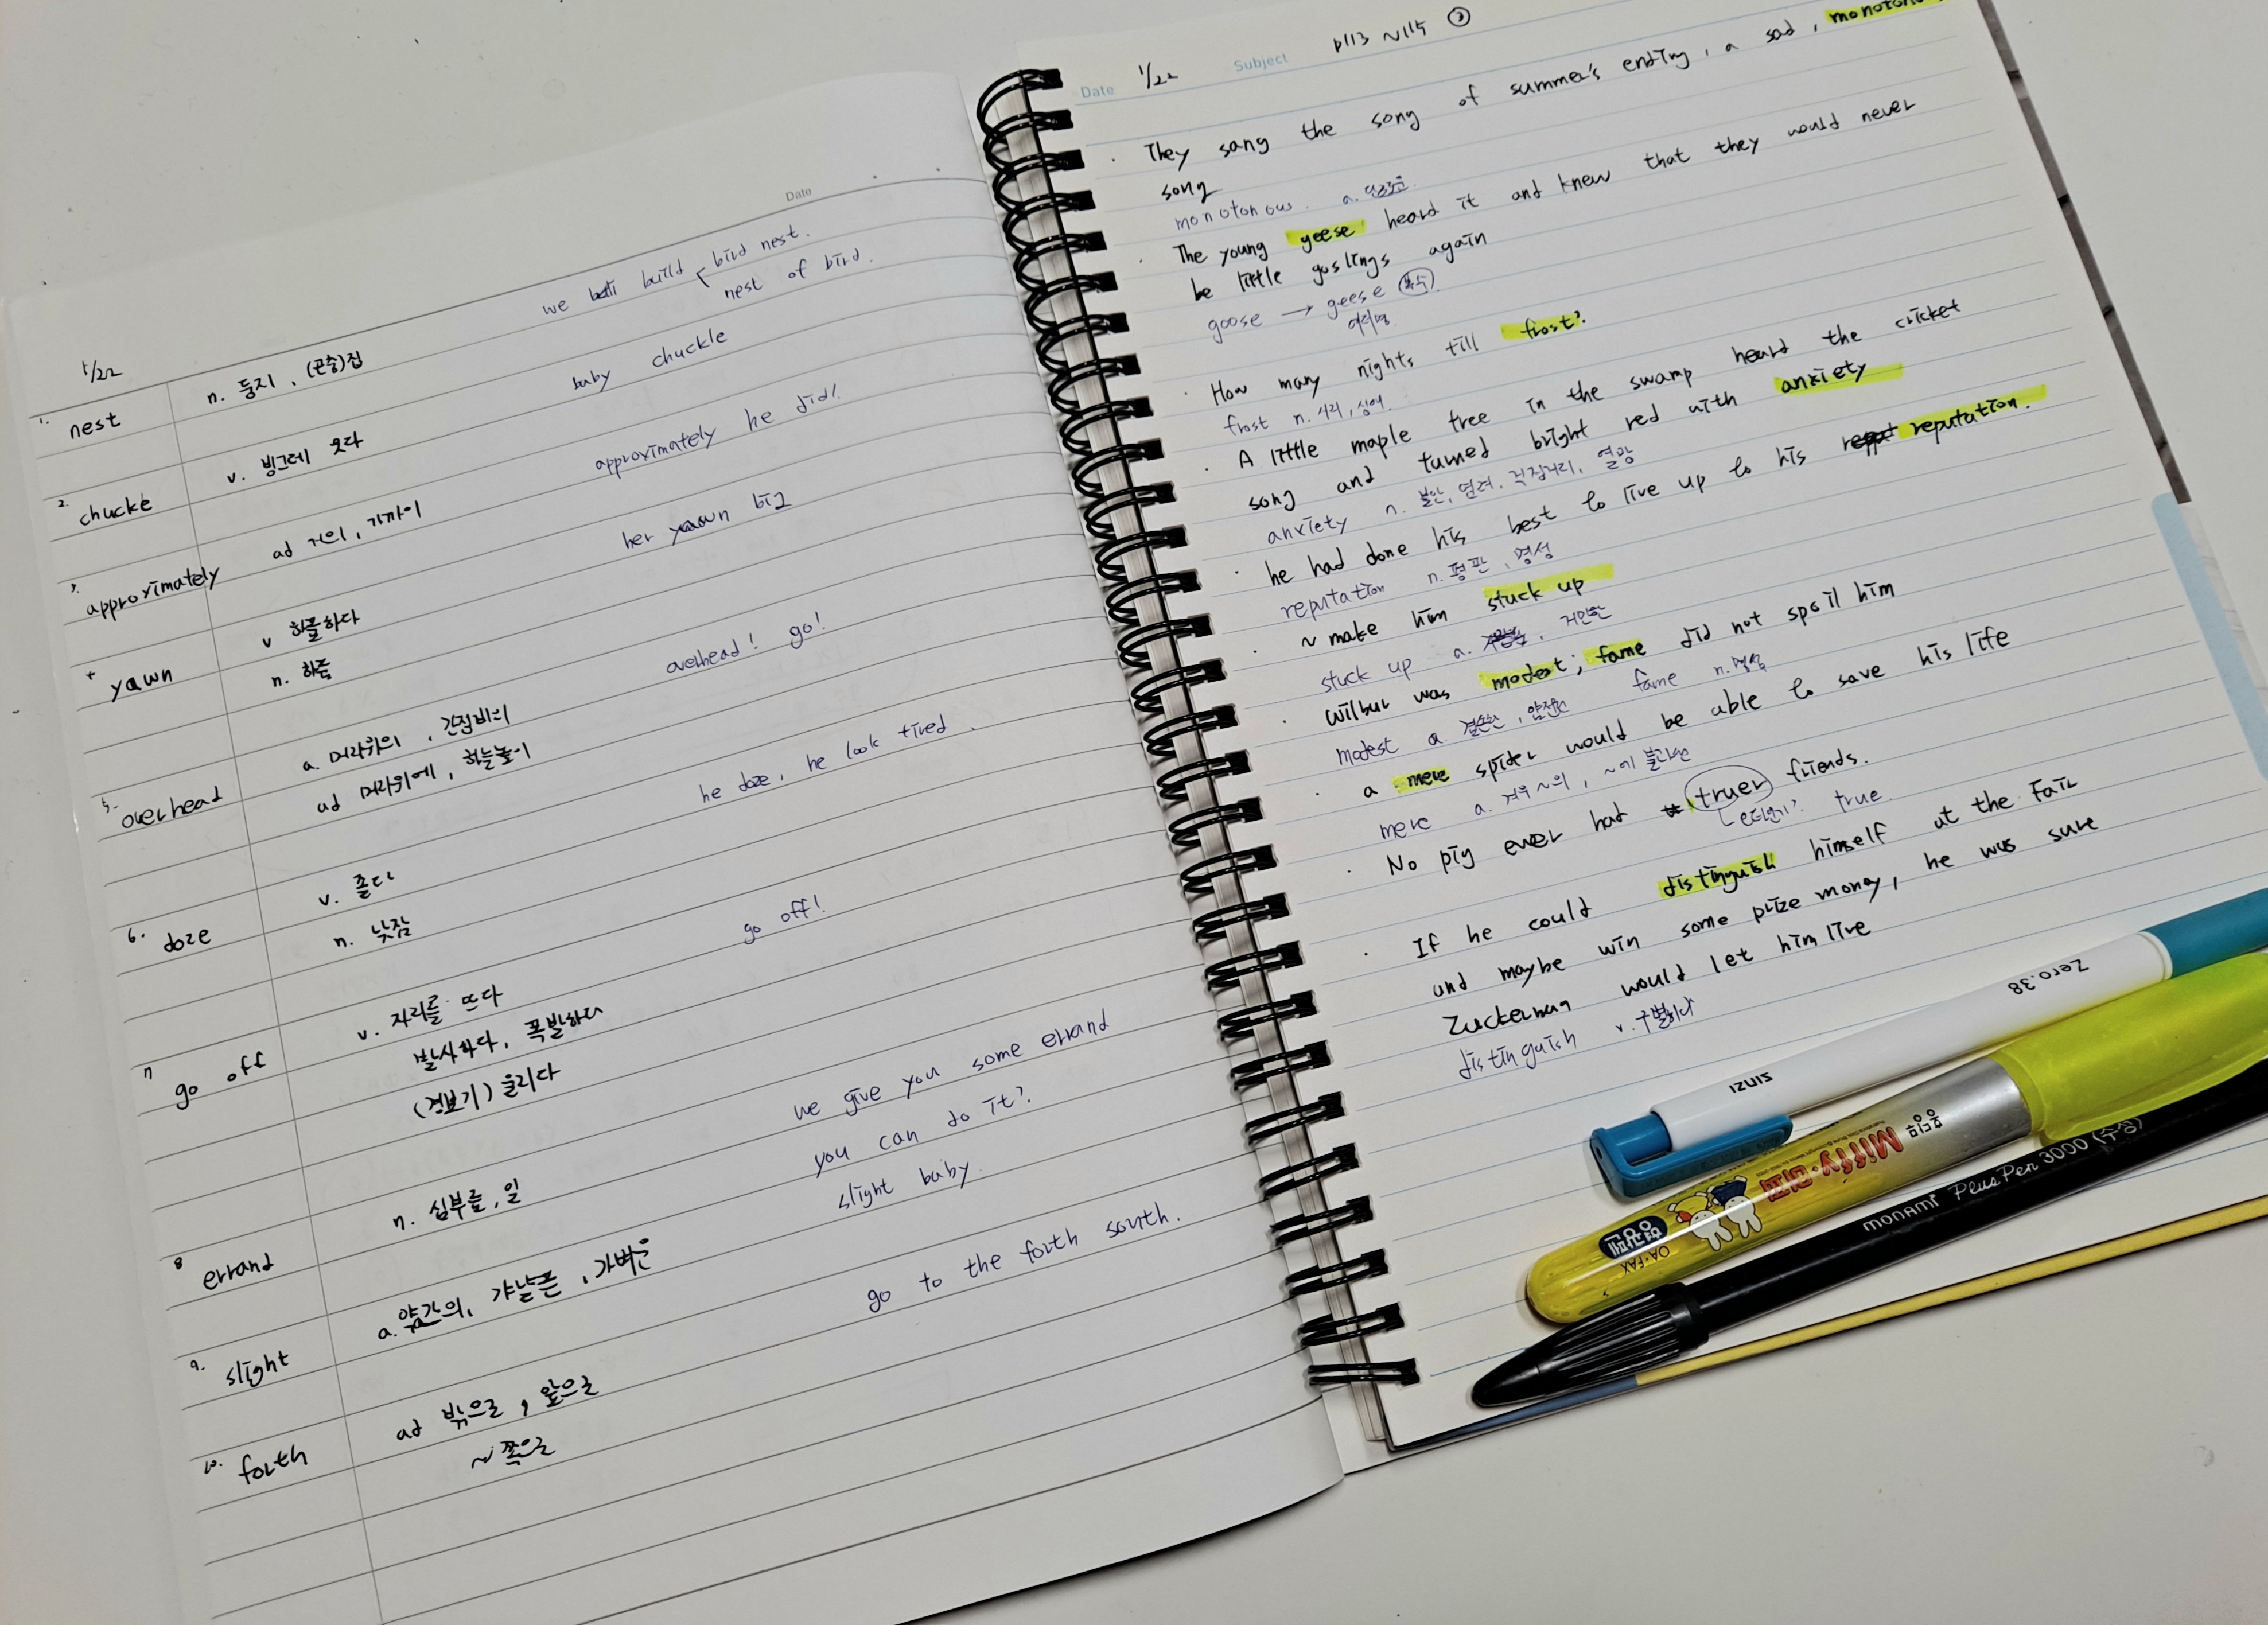 Date
we build bird nest.
nest of bird.
1/22
1. nest n. 둥지, (곤충)집
baby chuckle
2. chucke v. 빙그레 웃다
approximately he did!
3. approximately ad 거의, 가까이
her yawn big
4 yawn v 하품하다
n. 하품
overhead! go!
5. overhead a. 머리위의, 간접비의
ad 머리위에, 하늘높이
he doze, he look tired.
6. doze v. 졸다
n. 낮잠
go off!
7 go off v. 자리를 뜨다
발사하다, 폭발하다
(경보기) 울리다
we give you some errand
you can do it?
8 errand n. 심부름, 일
slight baby.
9. slight a. 약간의, 갸날픈, 가벼운
go to the forth south.
10. forth ad 밖으로, 앞으로
~쪽으로
Date 1/22 Subject p113 ~115 ③
· They sang the song of summer's ending, a sad,
song
monotonous. a. 단조로운
· The young geese heard it and knew that they would never
be little goslings again
goose → geese (복수)
여러명
· How many nights till frost?
frost n. 서리, 성에.
· A little maple tree in the swamp heard the cricket
song and turned bright red with anxiety
anxiety n. 불안, 염려, 걱정거리, 열망
· he had done his best to live up to his reputation.
reputation n. 평판, 명성
~ make him stuck up
stuck up a. 거만한
· Wilbur was modest; fame did not spoil him
modest a 겸손한, 얌전한 fame n. 명성
· a mere spider would be able to save his life
mere a. 겨우 ~의, ~에 불과한
· No pig ever had truer friends.
true.
· If he could distinguish himself at the Fair
and maybe win some prize money, he was sure
Zuckerman would let him live
distinguish v. 구별하다
Zero.38
SINZI
Miffy·미피
형광펜
OA·FAX
monami Plus Pen 3000 (수성)